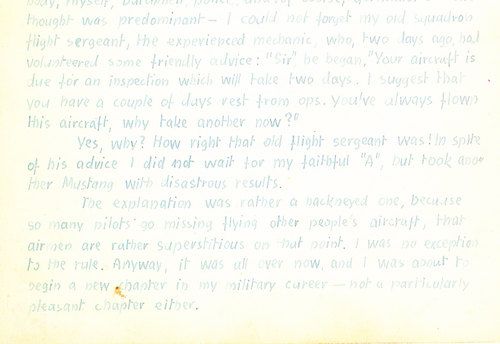 body, myself,
thought was predominant – I could not forget my old squadron
flight sergeant, the experienced mechanic, who, two days ago, had
volunteered some friendly advice: "Sir" he began, "Your aircraft is
due for an inspection which will take two days. I suggest that
you have a couple of days rest from ops. You've always flown
this aircraft, why take another now?"
Yes, why? How right that old flight sergeant was! In spite
of his advice I did not wait for my faithful "A", but took ano-
ther Mustang with disastrous results.
The explanation was rather a hackneyed one, because
so many pilots go missing flying other people's aircraft, that
airmen are rather superstitious on that point. I was no exception
to the rule. Anyway, it was all over now, and I was about to
begin a new chapter in my military career – not a particularly
pleasant chapter either.